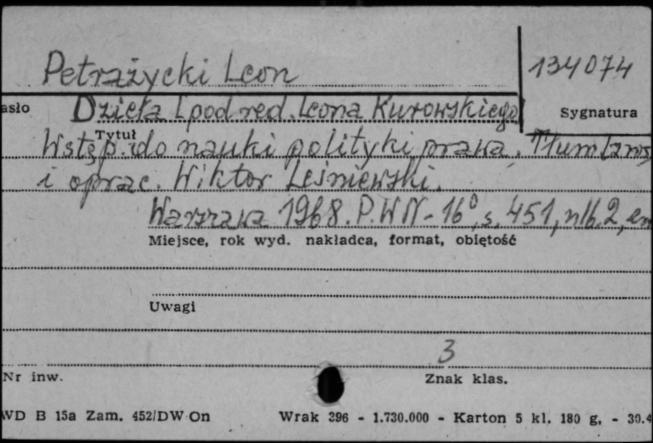 Petrażycki Leon
134074
asło
Dzieła [pod red. Leona Kurowskiego]
Sygnatura
Tytuł
Wstęp do nauki polityki prawa. Tłum. [z ros.]
i oprac. Wiktor Leśniewski.
Warszawa 1968. PWN - 16°, s. 451, nlb. 2, err
Miejsce, rok wyd. nakładca, format, objętość
Uwagi
3
Nr inw.
Znak klas.
WD B 15a Zam. 452/DW On Wrak 396 - 1.730.000 - Karton 5 kl. 180 g. - 30.4